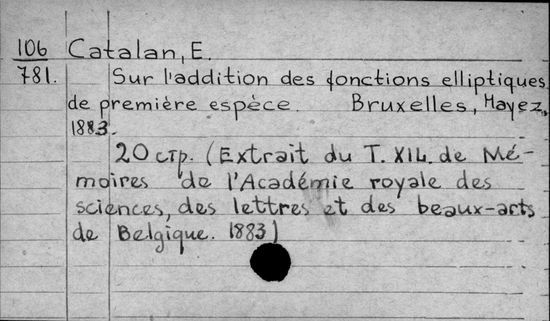 106 Catalan, E.
781. Sur l'addition des fonctions elliptiques
de première espèce. Bruxelles, Hayez,
1883.
20 стр. (Extrait du T. XLL. de Mé-
moires de l'Académie royale des
sciences, des lettres et des beaux-arts
de Belgique. 1883)